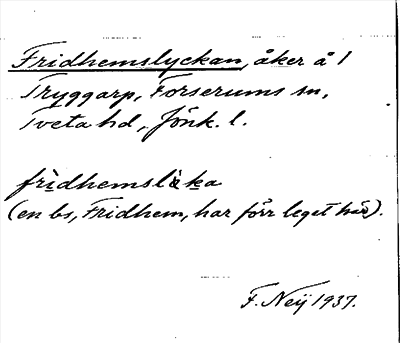 Fridhemslyckan, åker å 1
Tryggarp, Forserums sn,
Tveta hd, Jönk. l.
fridhemslɷka
(en bs, Fridhem, har förr leget här).
F. Neij 1937.